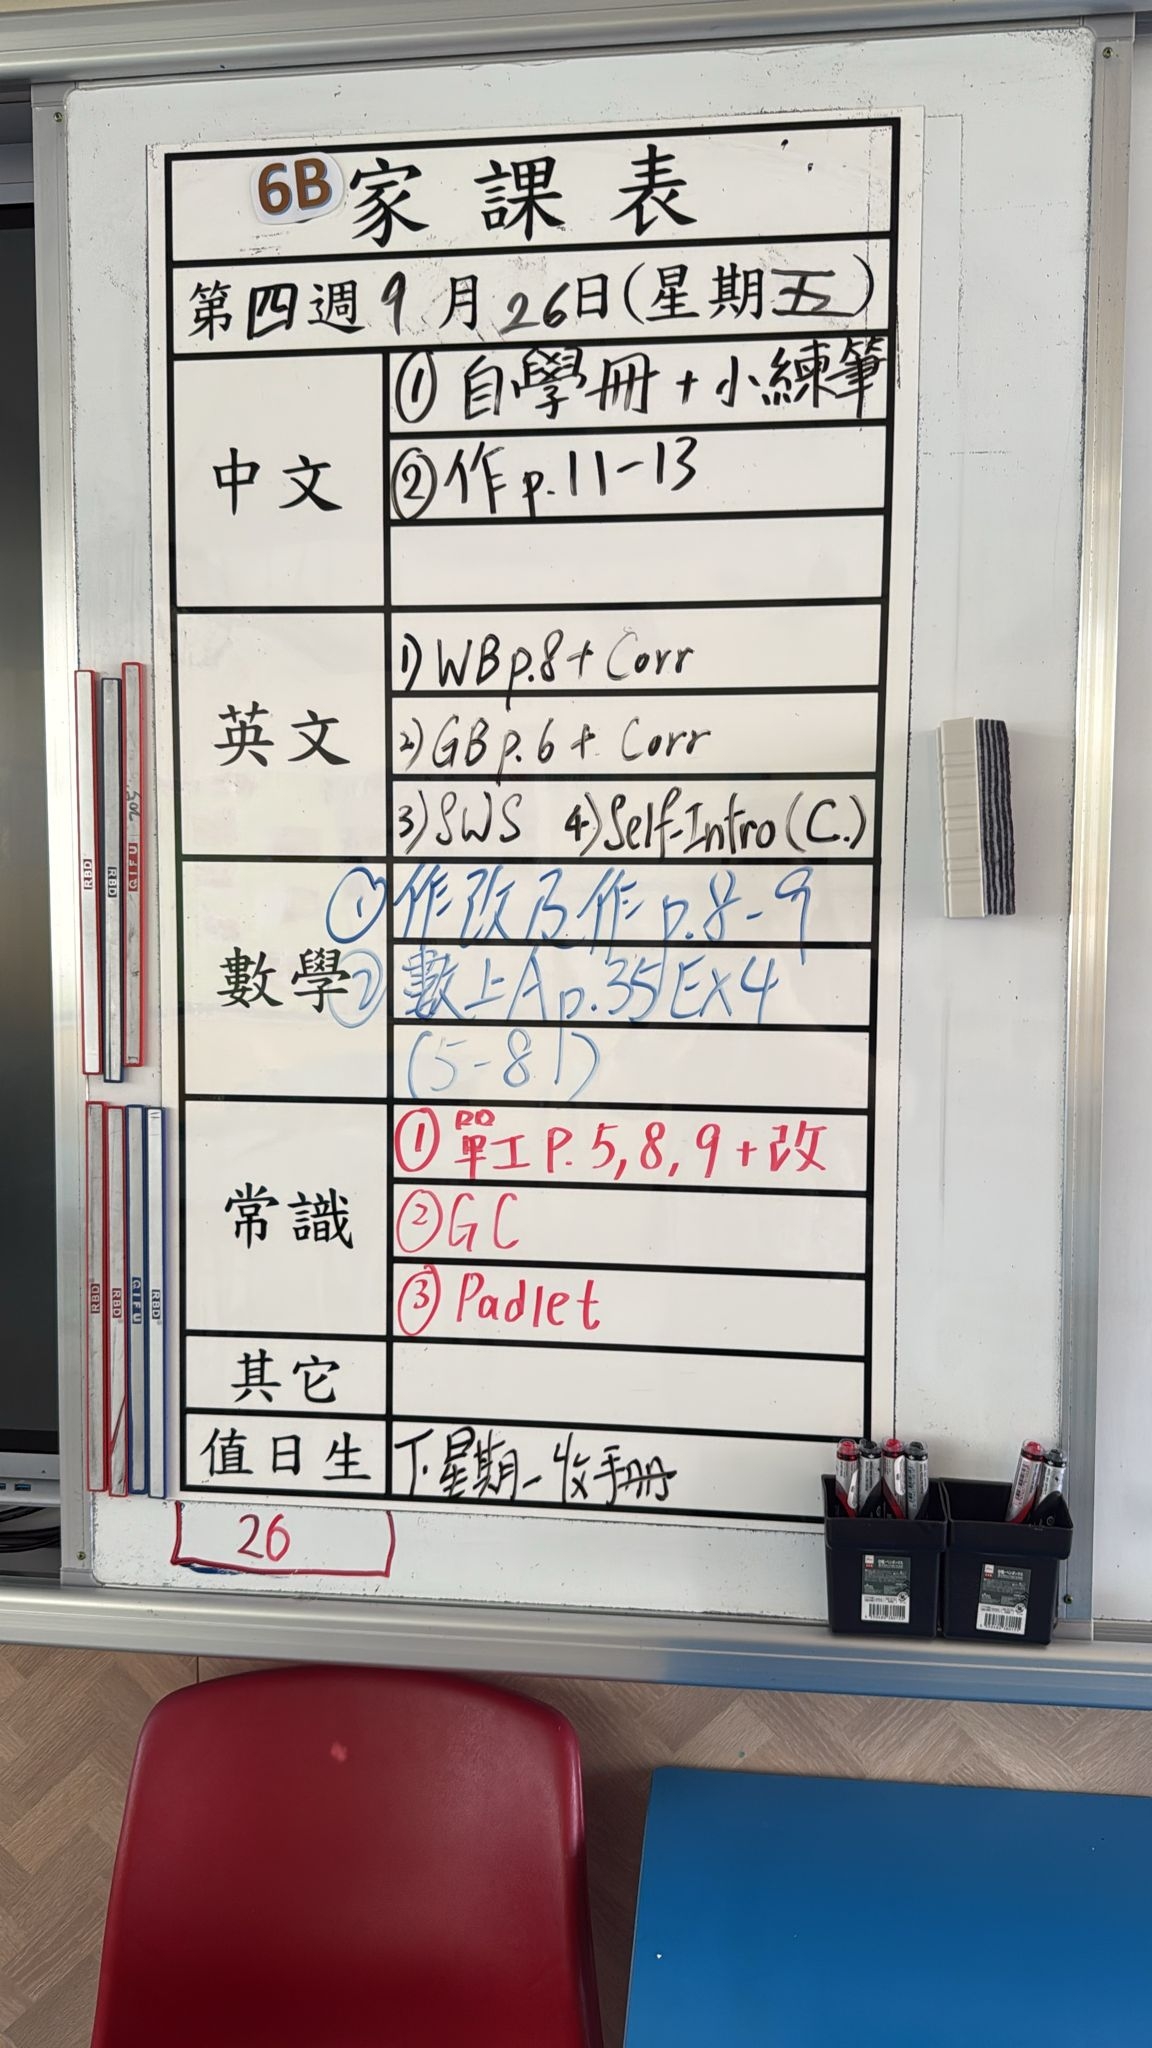 6B 家課表
第四週 9月26日(星期五)
中文
① 自學冊 + 小練筆
② 作 p.11-13
英文
1) WB p.8 + Corr
2) GB p.6 + Corr
3) SWS 4) Self-Intro (C.)
數學
① 作改及作 p.8-9
② 數上A p.35 EX4
常識
① 單工 P. 5, 8, 9 + 改
② GC
③ Padlet
其它
值日生
下星期一收手冊
26
RBD
RBD
GIFU 205
RBD
RBD
GIFU
RBD